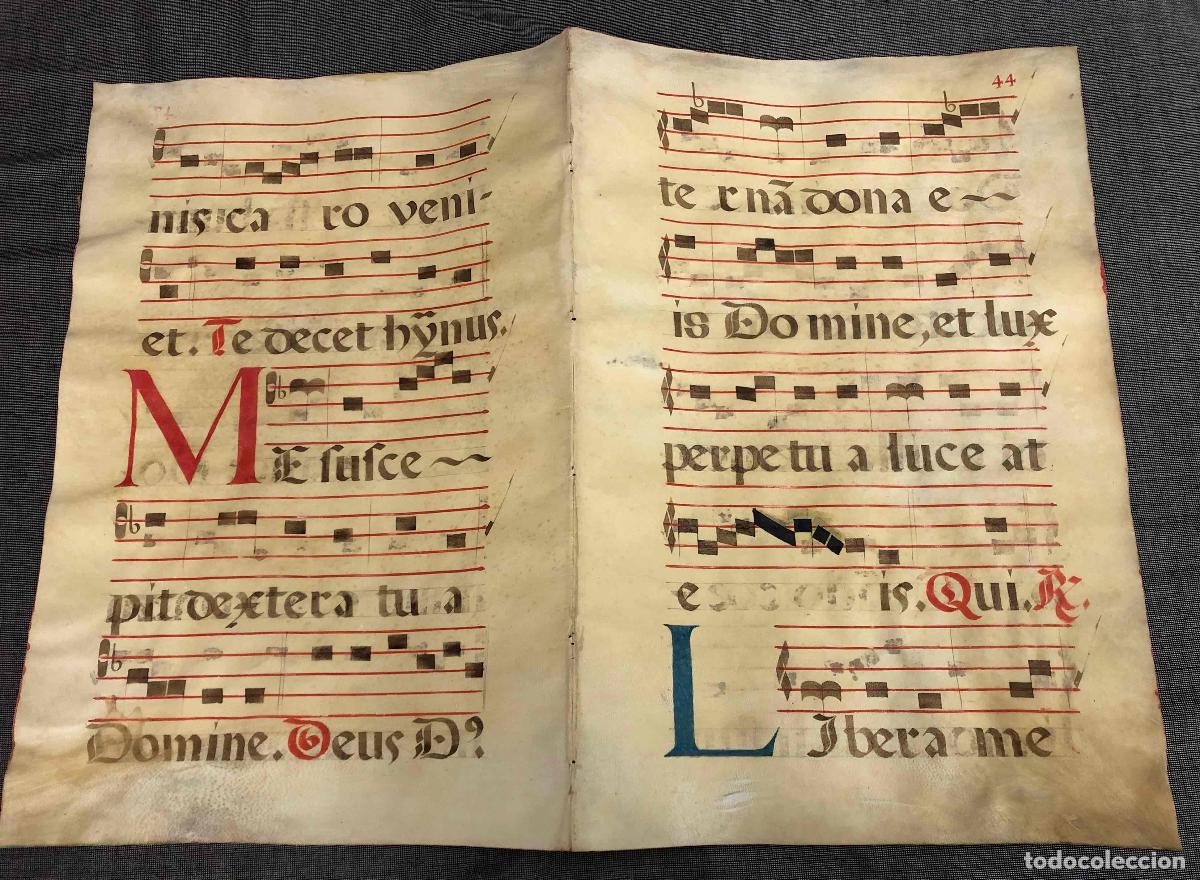 nis ca ro veni-
et. Te decet hÿnus.
ME susce~
pit dextera tu a
Domine. Deus D?
44
te rnã dona e~
is Do mine, et lux
perpe tu a luce at
e is. Qui. R.
LIbera me
todocoleccion